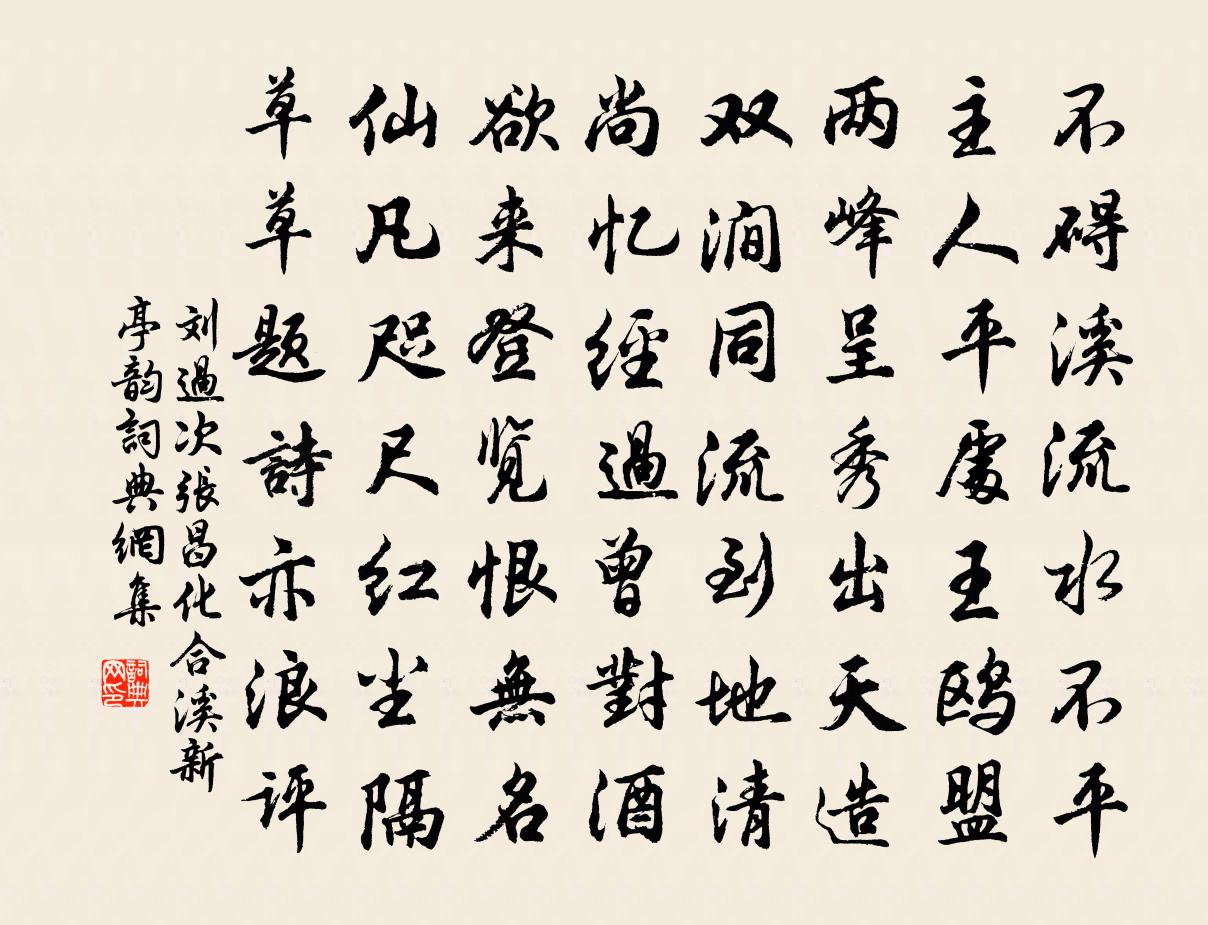 不碍溪流水不平
主人平處王鸥盟
两峰呈秀出天造
双澗同流到地清
尚忆經過曾對酒
欲来登览恨無名
仙凡咫尺红尘隔
草草题詩亦浪评
刘過次張昌化合溪新
亭韵詞典網集
詞典网印